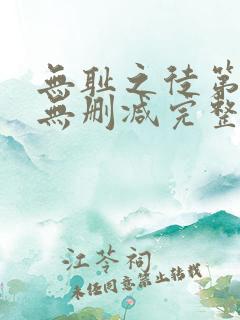 無耻之徒第
無删减完整
江苓祠
未经同意禁止转载